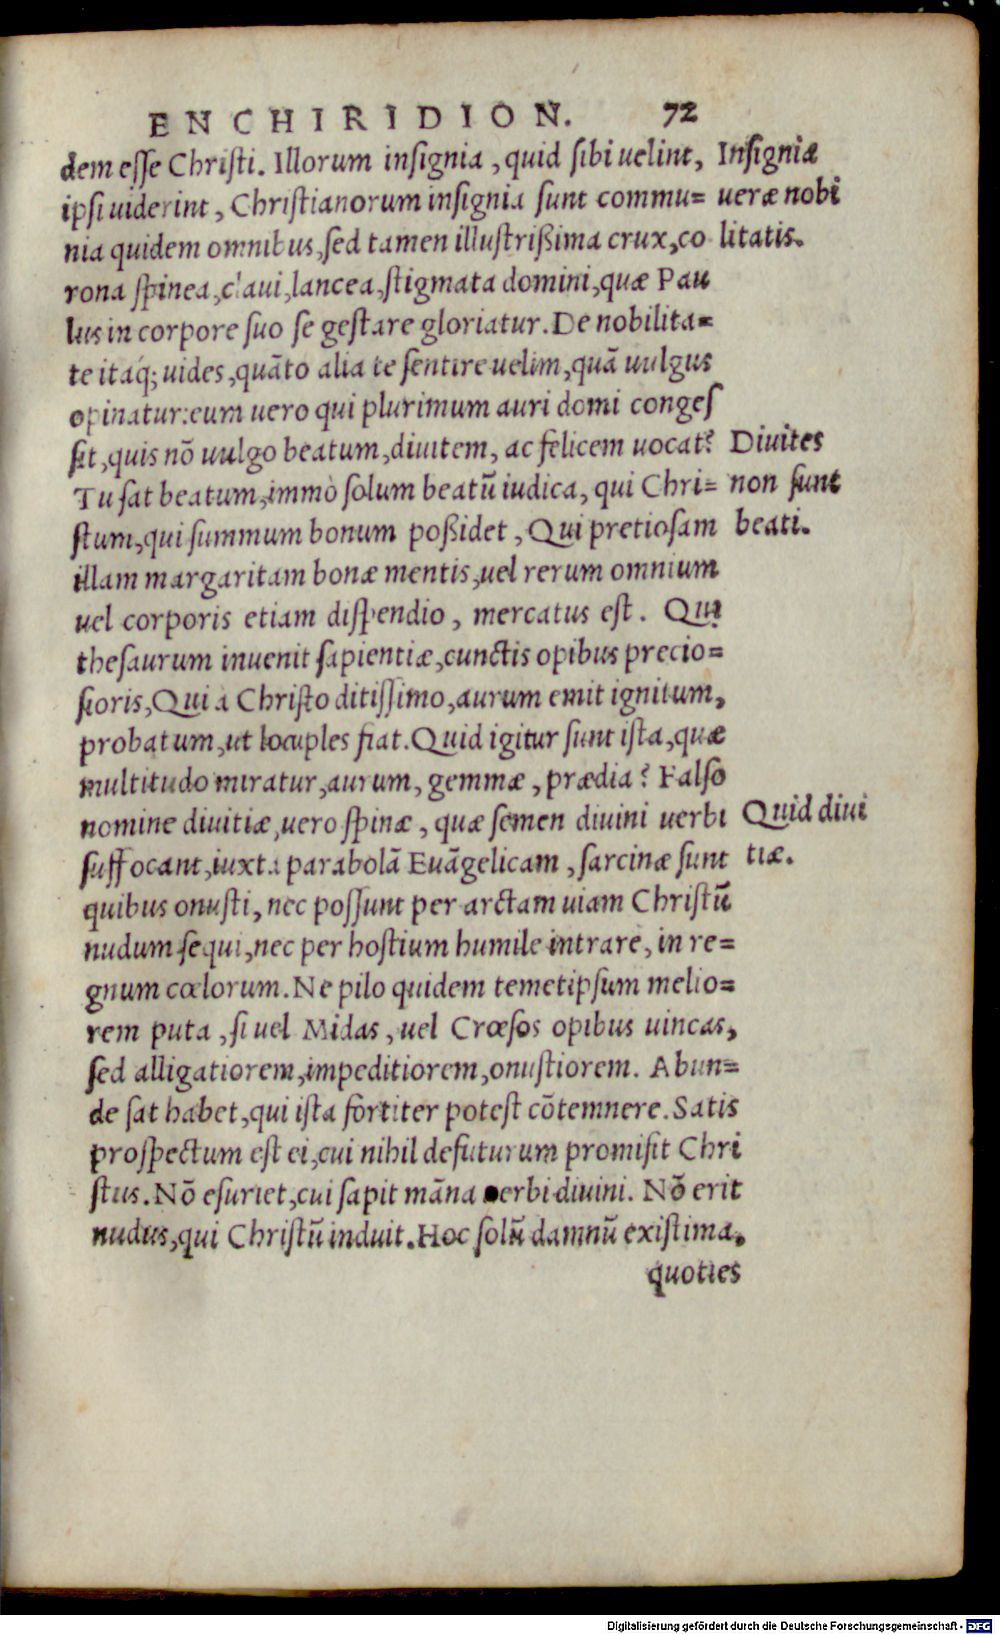 ENCHIRIDION. 72
dem esse Christi. Illorum insignia, quid sibi uelint,
ipsi uiderint, Christianorum insignia sunt commu=
nia quidem omnibus, sed tamen illustrißima crux, co
rona spinea, claui, lancea, stigmata domini, quæ Pau
lus in corpore suo se gestare gloriatur. De nobilita=
te itaq́; uides, quāto alia te sentire uelim, quā uulgus
opinatur: eum uero qui plurimum auri domi conges
sit, quis nō uulgo beatum, diuitem, ac felicem uocat?
Tu sat beatum, immo solum beatū iudica, qui Chri=
stum, qui summum bonum poßidet, Qui pretiosam
illam margaritam bonæ mentis, uel rerum omnium
uel corporis etiam dispendio, mercatus est. Qui
thesaurum inuenit sapientiæ, cunctis opibus precio=
sioris, Qui a Christo ditissimo, aurum emit ignitum,
probatum, ut locuples fiat. Quid igitur sunt ista, quæ
multitudo miratur, aurum, gemmæ, prædia? Falso
nomine diuitiæ, uero spinæ, quæ semen diuini uerbi
suffocant, iuxta parabolā Euāgelicam, sarcinæ sunt
quibus onusti, nec possunt per arctam uiam Christū
nudum sequi, nec per hostium humile intrare, in re=
gnum cœlorum. Ne pilo quidem temetipsum melio=
rem puta, si uel Midas, uel Crœsos opibus uincas,
sed alligatiorem, impeditiorem, onustiorem. Abun=
de sat habet, qui ista fortiter potest cōtemnere. Satis
prospectum est ei, cui nihil defuturum promisit Chri
stus. Nō esuriet, cui sapit māna uerbi diuini. Nō erit
nudus, qui Christū induit. Hoc solū damnū existima,
quoties
Insigniæ
ueræ nobi
litatis.
Diuites
non sunt
beati.
Quid diui
tiæ.
Digitalisierung gefördert durch die Deutsche Forschungsgemeinschaft - DFG